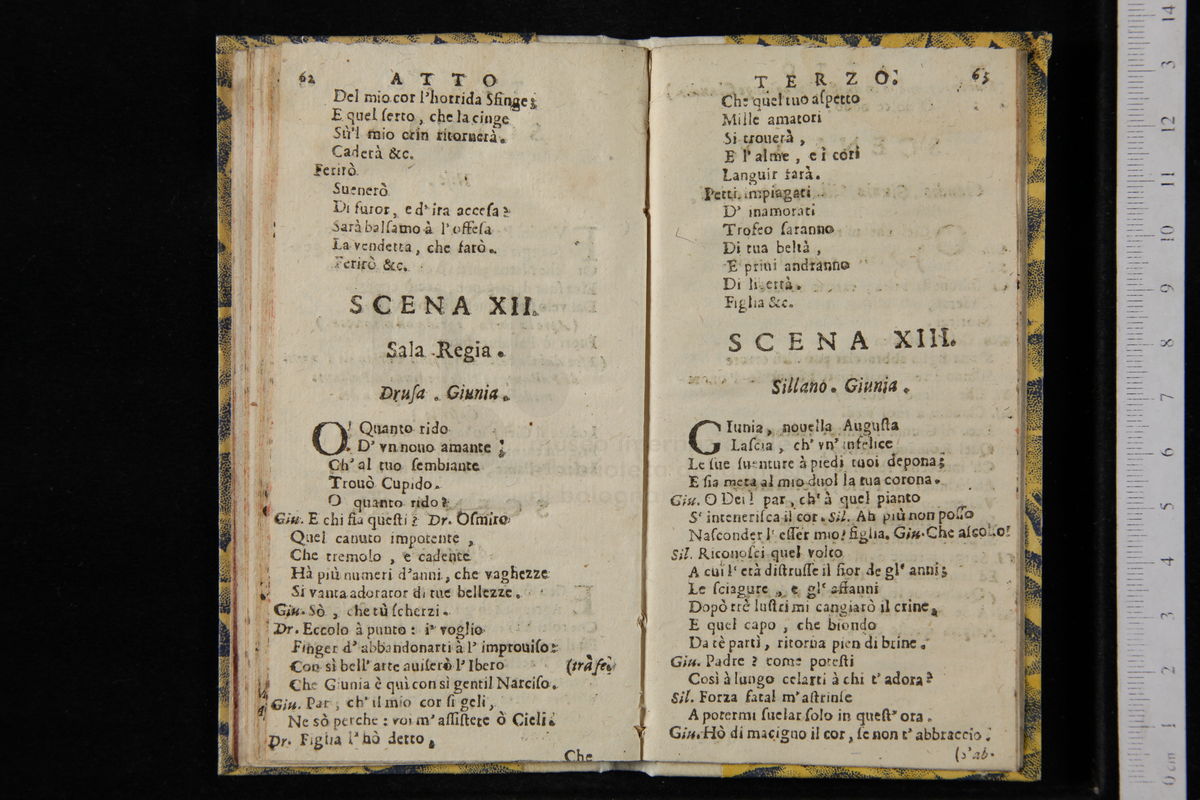 62 ATTO
Del mio cor l'horrida Sfinge;
E quel ſerto, che la cinge
Sù'l mio crin ritornerà.
Caderà &c.
Ferirò
Suenerò
Di furor, e d'ira acceſa?
Sarà balſamo à l'offeſa
La vendetta, che farò.
Ferirò &c.
SCENA XII.
Sala Regia.
Druſa. Giunia.
O! Quanto rido
D' vn nouo amante;
Ch' al tuo ſembiante
Trouò Cupido.
O quanto rido?
Giu. E chi fia queſti? Dr. Oſmiro
Quel canuto impotente,
Che tremolo, e cadente
Hà più numeri d'anni, che vaghezze
Si vanta adorator di tue bellezze.
Giu. Sò, che tù ſcherzi.
Dr. Eccolo à punto: i' voglio
Finger d' abbandonarti à l' improuiſo:
Con sì bell' arte auiſerò l' Ibero (trà ſe,
Che Giunia è quì con sì gentil Narciſo.
Giu. Par, ch' il mio cor ſi geli,
Ne sò perche: voi m' aſſiſtete ò Cieli.
Dr. Figlia l' hò detto,
Che
TERZO. 63
Che quel tuo aſpetto
Mille amatori
Si trouerà,
E l' alme, e i cori
Languir farà.
Petti impiagati
D' inamorati
Trofeo ſaranno
Di tua beltà,
E priui andranno
Di libertà.
Figlia &c.
SCENA XIII.
Sillano. Giunia.
GIunia, nouella Auguſta
Laſcia, ch' vn' infelice
Le ſue ſuenture à piedi tuoi depona;
E ſia meta al mio duol la tua corona.
Giu. O Dei! par, ch' à quel pianto
S' inteneriſca il cor. Sil. Ah più non poſſo
Naſconder l' eſſer mio? figlia. Giu. Che aſcolto!
Sil. Riconoſci quel volto
A cui l' età diſtruſſe il fior de gl' anni;
Le ſciagure, e gl' affanni
Dopò trè luſtri mi cangiarò il crine,
E quel capo, che biondo
Da tè partì, ritorna pien di brine.
Giu. Padre? come poteſti
Così à lungo celarti à chi t' adora?
Sil. Forza fatal m' aſtrinſe
A potermi ſuelar ſolo in queſt' ora.
Giu. Hò di macigno il cor, ſe non t' abbraccio.
(s'ab-
14
13
12
11
10
9
8
7
6
5
4
3
2
1
0 cm